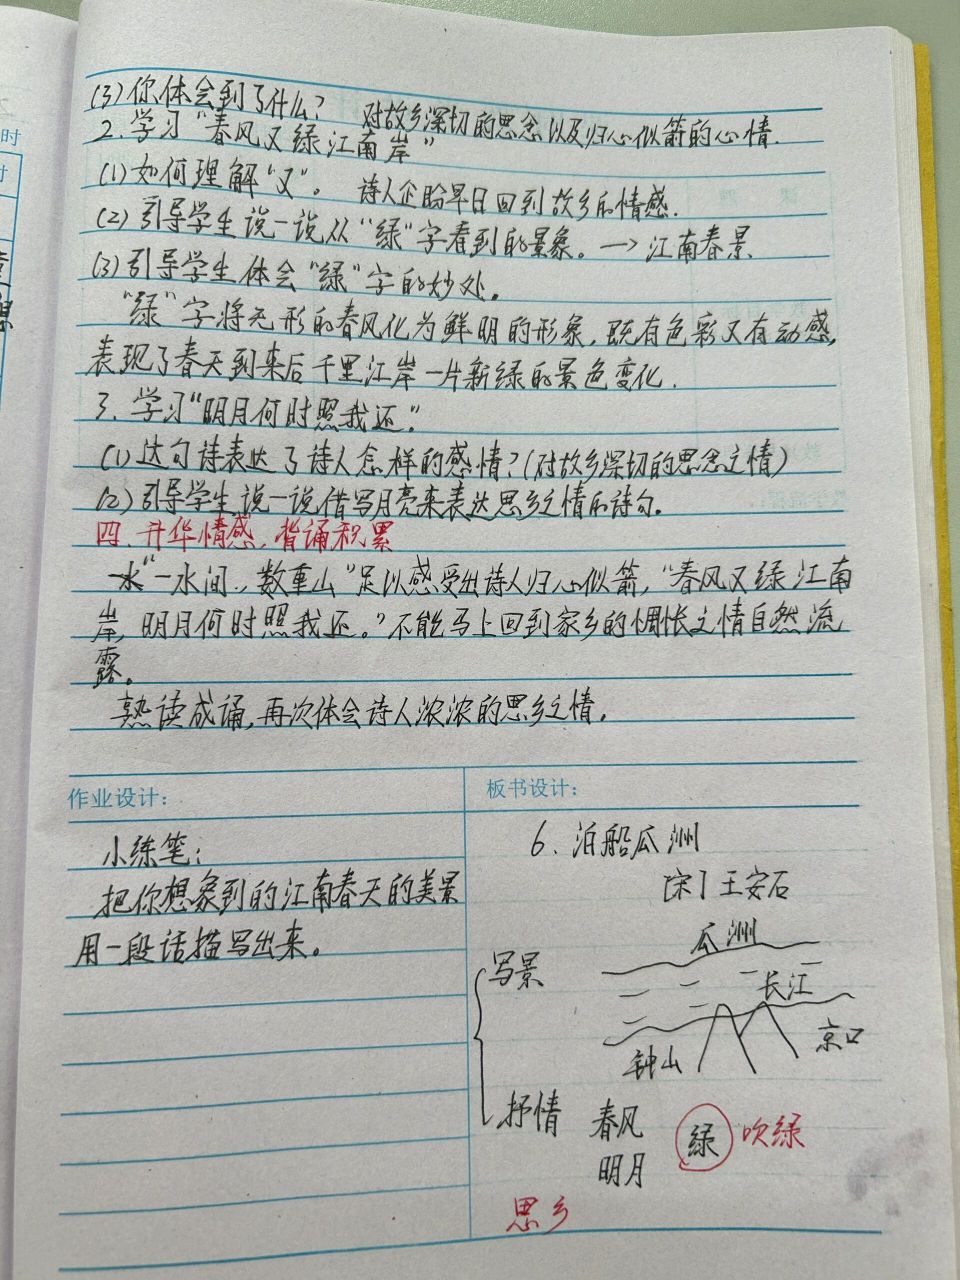 (3)你体会到了什么? 对故乡深切的思念以及归心似箭的心情.
2.学习"春风又绿江南岸"
(1)如何理解"又"。 诗人企盼早日回到故乡的情感.
(2)引导学生说一说从"绿"字看到的景象。→江南春景
(3)引导学生体会"绿"字的妙处。
"绿"字将无形的春风化为鲜明的形象,既有色彩又有动感,
表现了春天到来后千里江岸一片新绿的景色变化.
3.学习"明月何时照我还."
(1)这句诗表达了诗人怎样的感情?(对故乡深切的思念之情)
(2)引导学生说一说借写月亮来表达思乡之情的诗句。
四.升华情感,背诵积累
"一水间,,数重山"足以感受出诗人归心似箭,"春风又绿江南
岸,明月何时照我还。"不能马上回到家乡的惆怅之情自然流
露。
熟读成诵,再次体会诗人浓浓的思乡之情。
作业设计:
小练笔:
把你想象到的江南春天的美景
用一段话描写出来。
板书设计:
6.泊船瓜洲
[宋]王安石
瓜洲
写景
长江
京口
钟山
抒情 春风 绿 吹绿
明月
思乡
时